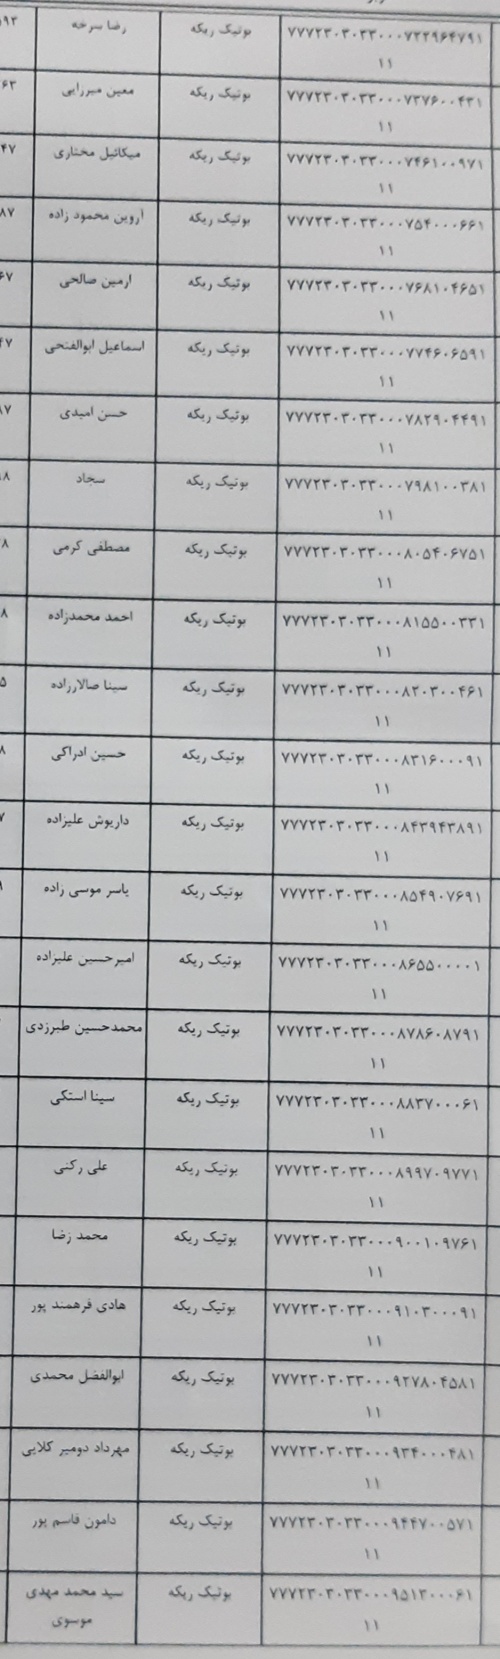 ۷۷۷۲۳۰۳۰۳۳۰۰۰۷۲۲۹۶۴۷۹۱ بوتیک ریکه رضا سرخه
۱۱
۷۷۷۲۳۰۳۰۳۳۰۰۰۷۳۷۶۰۰۴۳۱ بوتیک ریکه معین میرزایی
۱۱
۷۷۷۲۳۰۳۰۳۳۰۰۰۷۴۶۱۰۰۹۷۱ بوتیک ریکه میکائیل مختاری
۱۱
۷۷۷۲۳۰۳۰۳۳۰۰۰۷۵۴۰۰۰۶۶۱ بوتیک ریکه آروین محمود زاده
۱۱
۷۷۷۲۳۰۳۰۳۳۰۰۰۷۶۸۱۰۴۶۵۱ بوتیک ریکه آرمین صالحی
۱۱
۷۷۷۲۳۰۳۰۳۳۰۰۰۷۷۴۶۰۶۵۹۱ بوتیک ریکه اسماعیل ابوالفتحی
۱۱
۷۷۷۲۳۰۳۰۳۳۰۰۰۷۸۲۹۰۴۴۹۱ بوتیک ریکه حسن امیدی
۱۱
۷۷۷۲۳۰۳۰۳۳۰۰۰۷۹۸۱۰۰۳۸۱ بوتیک ریکه سجاد
۱۱
۷۷۷۲۳۰۳۰۳۳۰۰۰۸۰۵۴۰۶۷۵۱ بوتیک ریکه مصطفی کرمی
۱۱
۷۷۷۲۳۰۳۰۳۳۰۰۰۸۱۵۵۰۰۳۳۱ بوتیک ریکه احمد محمدزاده
۱۱
۷۷۷۲۳۰۳۰۳۳۰۰۰۸۲۰۳۰۰۴۶۱ بوتیک ریکه سینا صالارزاده
۱۱
۷۷۷۲۳۰۳۰۳۳۰۰۰۸۳۱۶۰۰۰۹۱ بوتیک ریکه حسین ادراکی
۱۱
۷۷۷۲۳۰۳۰۳۳۰۰۰۸۴۳۹۴۳۸۹۱ بوتیک ریکه داریوش علیزاده
۱۱
۷۷۷۲۳۰۳۰۳۳۰۰۰۸۵۴۹۰۷۶۹۱ بوتیک ریکه یاسر موسی زاده
۱۱
۷۷۷۲۳۰۳۰۳۳۰۰۰۸۶۵۵۰۰۰۰۱ بوتیک ریکه امیرحسین علیزاده
۱۱
۷۷۷۲۳۰۳۰۳۳۰۰۰۸۷۸۶۰۸۷۹۱ بوتیک ریکه محمدحسین طبرزدی
۱۱
۷۷۷۲۳۰۳۰۳۳۰۰۰۸۸۳۷۰۰۰۶۱ بوتیک ریکه سینا استکی
۱۱
۷۷۷۲۳۰۳۰۳۳۰۰۰۸۹۹۷۰۹۷۷۱ بوتیک ریکه علی رکنی
۱۱
۷۷۷۲۳۰۳۰۳۳۰۰۰۹۰۰۱۰۹۷۶۱ بوتیک ریکه محمد رضا
۱۱
۷۷۷۲۳۰۳۰۳۳۰۰۰۹۱۰۳۰۰۰۹۱ بوتیک ریکه هادی فرهمند پور
۱۱
۷۷۷۲۳۰۳۰۳۳۰۰۰۹۲۷۸۰۴۵۸۱ بوتیک ریکه ابوالفضل محمدی
۱۱
۷۷۷۲۳۰۳۰۳۳۰۰۰۹۳۴۰۰۰۴۸۱ بوتیک ریکه مهرداد دومیر کلایی
۱۱
۷۷۷۲۳۰۳۰۳۳۰۰۰۹۴۴۷۰۰۵۷۱ بوتیک ریکه دامون قاسم پور
۱۱
۷۷۷۲۳۰۳۰۳۳۰۰۰۹۵۱۳۰۰۰۶۱ بوتیک ریکه سید محمد مهدی
۱۱ موسوی